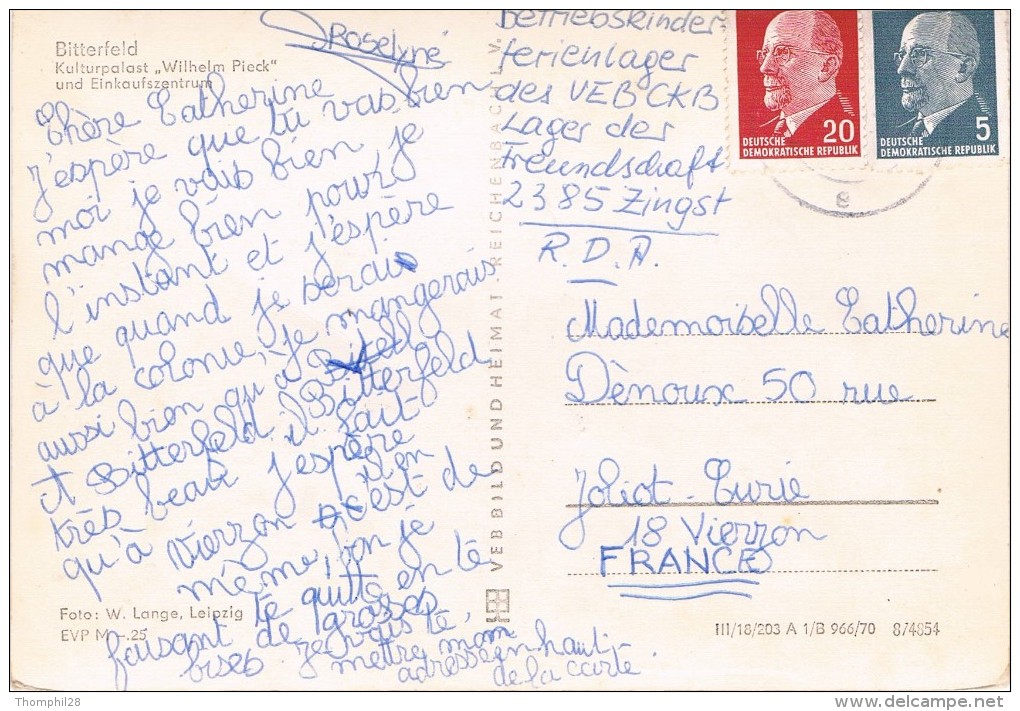 Bitterfeld
Kulturpalast „Wilhelm Pieck"
und Einkaufszentrum
Joselyne
Chère Catherine
J'espère que tu vas bien
moi je vais bien je
mange bien pour
l'instant et j'espère
que quand je serais
à la colonie, je mangerais
aussi bien qu'à
Bitterfeld
A Bitterfeld il fait
très beau j'espère
qu'à Vierzon il en
est de
même, bon je
te quitte en te
faisant de grosses
bises je vais te
mettre mon
adresse en haut
de la carte.
Foto: W. Lange, Leipzig
EVP M -.25
VEB BILD UND HEIMAT · REICHENBACH I. V.
Betriebskinder
ferienlager
des VEB CKB
Lager der
Freundschaft
2385 Zingst
R.D.A.
20
DEUTSCHE
DEMOKRATISCHE REPUBLIK
5
DEUTSCHE
DEMOKRATISCHE REPUBLIK
e
Mademoiselle Catherine
Dènoux 50 rue
Joliot-Curie
18 Vierzon
FRANCE
III/18/203 A 1/B 966/70 874854
Thomphil28
delcampe.net